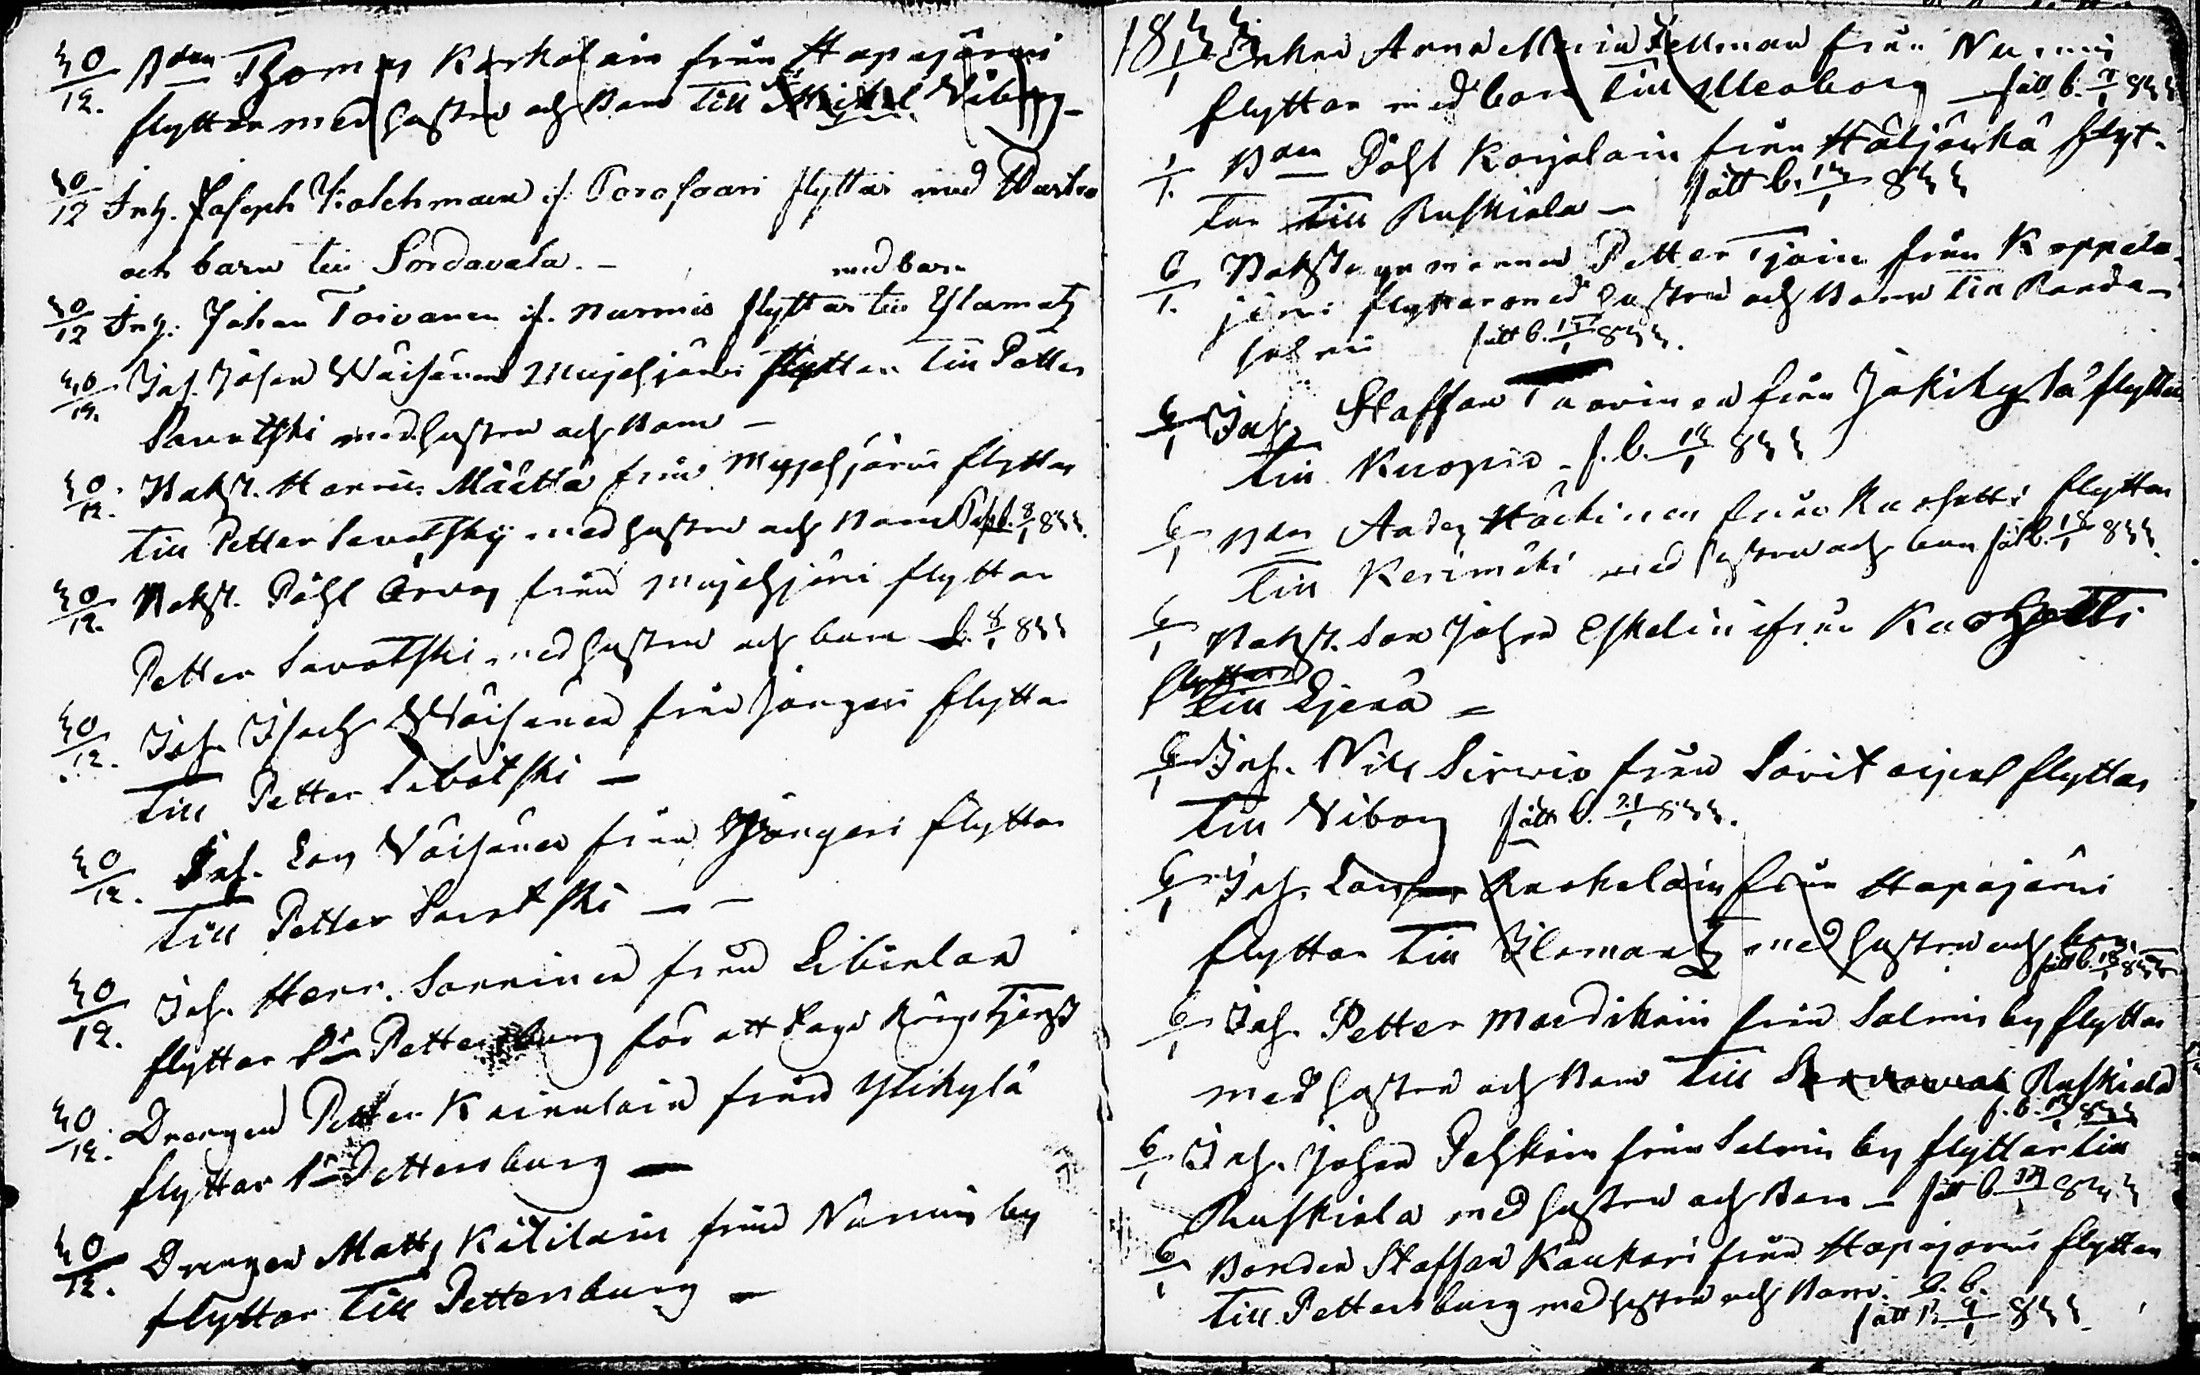 30/12. Bdn Thomas Karholain från Hapajärvi
flyttar med hustru och Barn till Wiborg -
30/12 Inh. Joseph Kolehmain if. Porosoari flyttar med Hustru
och barn till Sordavala. -
med barn
30/12 Inh. Johan Toivanen if. Nurmis flyttar till Ilamatz
30/12. Inh. Johan Wäisänen Mujehjärvi flyttar till Petter
Savotski med hustru och Barn -
30/12. Bakst. Henric Määttä från Mujehjärvi flyttar
till Petter Savotskij med hustru och Barn b. 8/1 833.
30/12. Bakst. Påhl Orvas från Mujehjärvi flyttar
Petter Savotski med hustru och barn b. 8/1 833
30/12. Inh. Isach Wäisänen från Jongeri flyttar
till Petter Savotski -
30/12. Inh. Lars Väisänen från Jongeri flyttar
till Petter Savotski - -
30/12. Inh. Herr. Sorminen från Libielax
flyttar till Pettersburg för att taga Krigstjenst
30/12. Drengen Petter Kainulain från Ylikylä
flyttar till Pettersburg -
30/12. Drengen Matts Kälilain från Nurmis by
flyttar till Pettersburg -
1833 Enkan Anna Maria Fellman från Nurmis
1/1 flyttar med barn till Uleaborg fått b. 7/1 833
1/1. Bdn Påhl Korjalain från Höljänkä flyt-
tar till Ruskiala - fått b. 13/1 833
6/1. Bakstugumannen Petter Tjain från Koppelo-
järvi flyttar med hustru och Barn till Randa-
salmi fått b. 15/1 833.
6/1 Inh. Staffan Tuovinen från Jokikylä flyttar
till Kuopio - f. b. 13/1 833
6/1 Bdn Anders Häckinen från Kuohatti flyttar
till Kerimäki med hustru och barn fått b. 18/1 833.
6/1 Bakst. Son Johan Eskelin ifrån Kuohatti
flyttar
till Ljera =
6/1 Inh. Nils Sirviö från Savikaipal flyttar
till Viborg fått b. 21/1 833.
6/1 Inh. Lars Karhelain från Hapajärvi
flyttar till Ilomantz med hustru och barn
fått b. 13/1 833
6/1 Inh. Petter Mardikain från Salmis by flyttar
med hustru och Barn till Ruskiala
f. b. 13/1 833
6/1 Inh. Johan Pehkoin från Salmis by flyttar till
Ruskiala med hustru och Barn - fått b. 14/1 833
6/1 Bonden Staffan Kaukari från Hapajärvi flyttar
till Pettersburg med hustru och Barn.
fått b. 9/1 833.